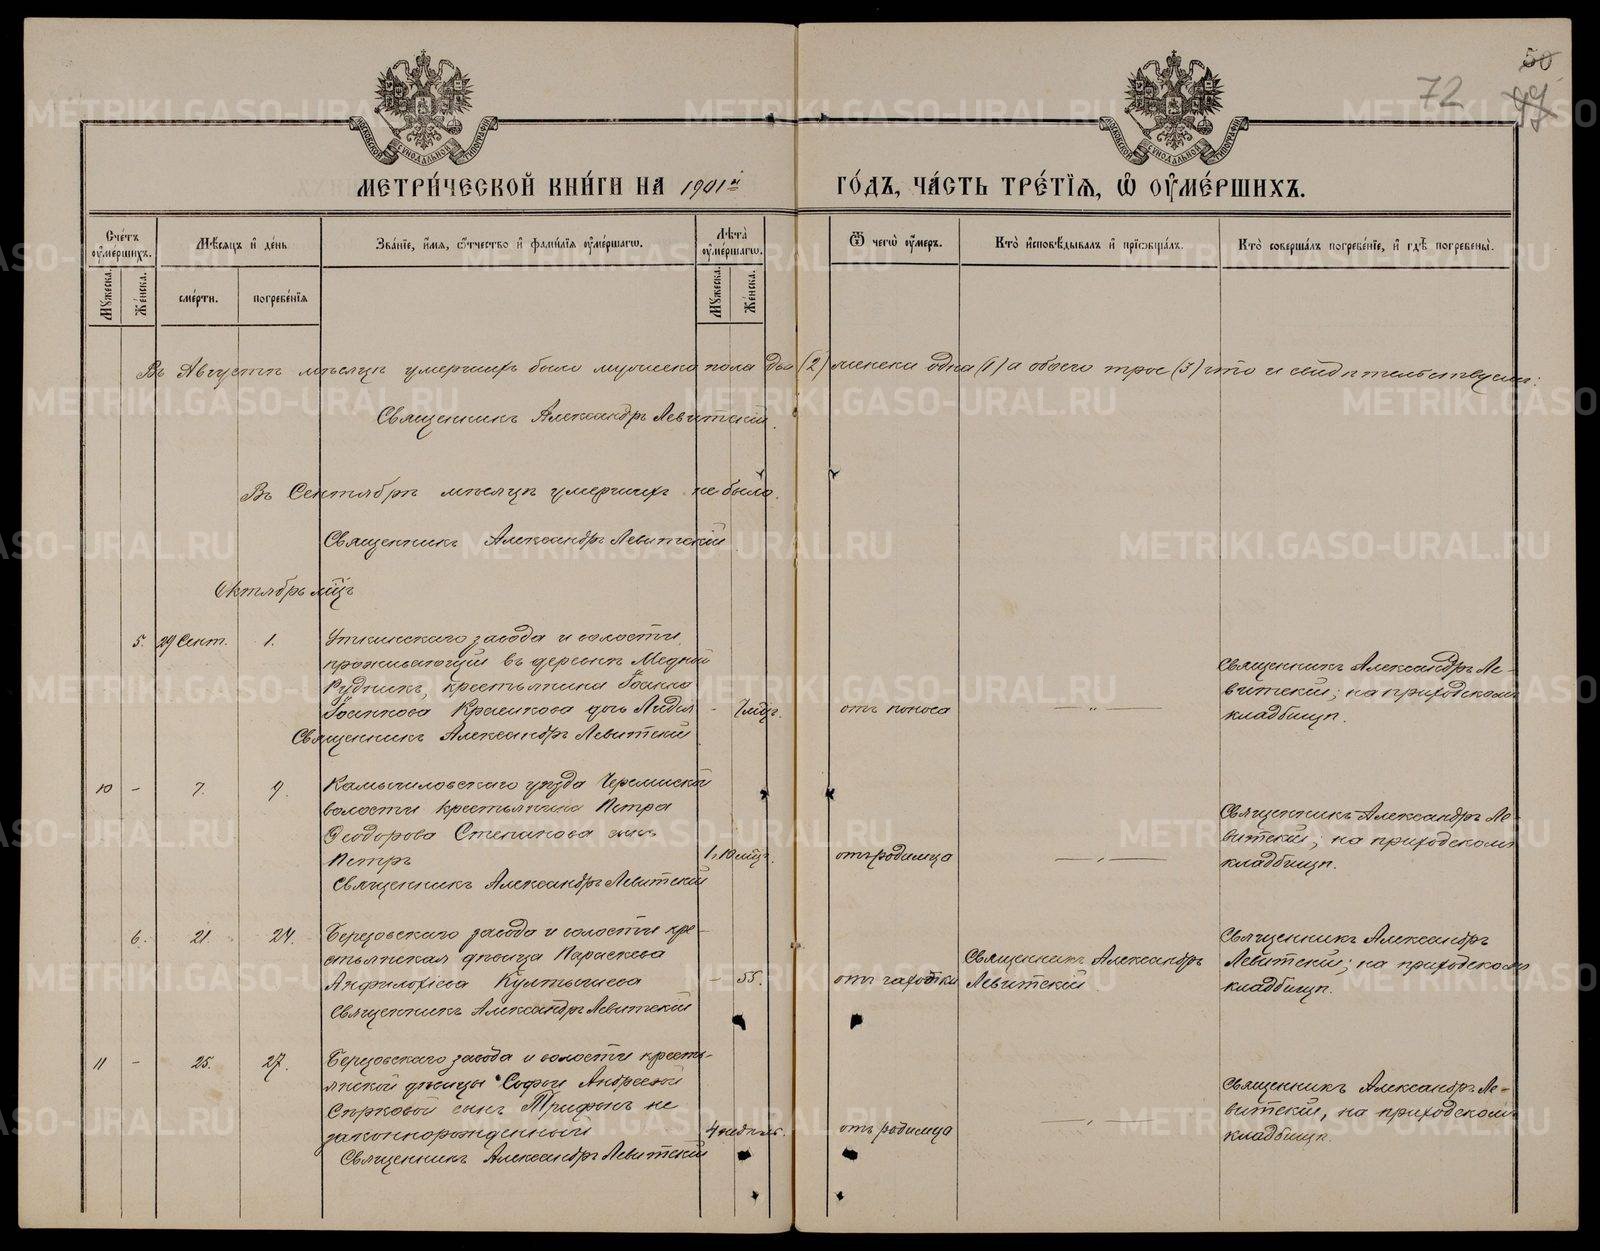 50
72 99
МЕТРИ́ЧЕСКОЙ КНИ́ГИ НА 1901й ГО́ДЪ, ЧА́СТЬ ТРЕ́ТІѦ, Ѡ҆ ОУ҆МЕ́РШИХЪ.
Сче́тъ оу҆ме́ршихъ.
Мꙋ́жеска.
Же́нска.
Мѣ́сяцъ и҆ де́нь
сме́рти.
погребе́нїѧ
Зва́нїе, и҆́мѧ, ѻ҆́тчество и҆ фами́лїѧ оу҆ме́ршагѡ.
Лѣ́та оу҆ме́ршагѡ.
Мꙋ́жеска.
Же́нска.
Ѿ чегѡ̀ оу҆́меръ.
Кто̀ и҆сповѣ́дывалъ и҆ прїѡбща́лъ.
Кто̀ соверша́лъ погребе́нїе, и҆ гдѣ̀ погребены̀.
Въ Августѣ мѣсяцѣ умершихъ было мужеска пола два (2) женска одна (1) а обоего трое (3) что и свидѣтельствуемъ:
Священникъ Александръ Левитскій.
Въ Сентябрѣ мѣсяцѣ умершихъ не было.
Священникъ Александръ Левитскій
Октябрь мѣц
5. 29 Сент. 1. Уткинскаго завода и волости
проживающій въ деревнѣ Мѣдной
Рудникъ, крестьянина Іоанна
Іоаннова Красикова дочь Лидія - 7 мѣц. отъ поноса — „ —
Священникъ Александръ Левитскій
Священникъ Александръ Ле-
витскій; на приходскомъ
кладбищѣ.
10 - 7. 9. Камышловскаго уѣзда Черемиской
волости крестьянина Петра
Ѳеодорова Степанова сынъ
Петръ 1, 10 мѣц. отъ родимца — „ —
Священникъ Александръ Левитскій
Священникъ Александръ Ле-
витскій; на приходскомъ
кладбищѣ.
6. 21. 24. Березовскаго завода и волости кре-
стьянская дѣвица Параскева
Анфилофіева Култышева - 55. отъ чахотки
Священникъ Александръ Левитскій
Священникъ Александръ
Левитскій
Священникъ Александръ
Левитскій; на приходскомъ
кладбищѣ.
11 - 25. 27. Березовскаго завода и волости кресть-
янской дѣвицы Софіи Андреевой
сынъ Трифонъ не
законнорожденный 4 недѣль. отъ родимца — „ —
Священникъ Александръ Левитскій
Священникъ Александръ Ле-
витскій, на приходскомъ
кладбищѣ.
METRIKI.GASO-URAL.RU